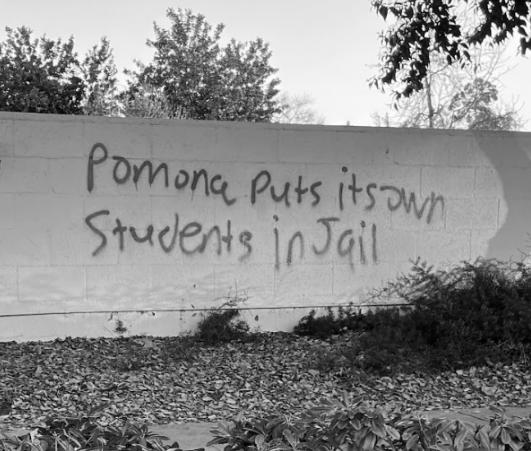 Pomona Puts its own
Students in Jail